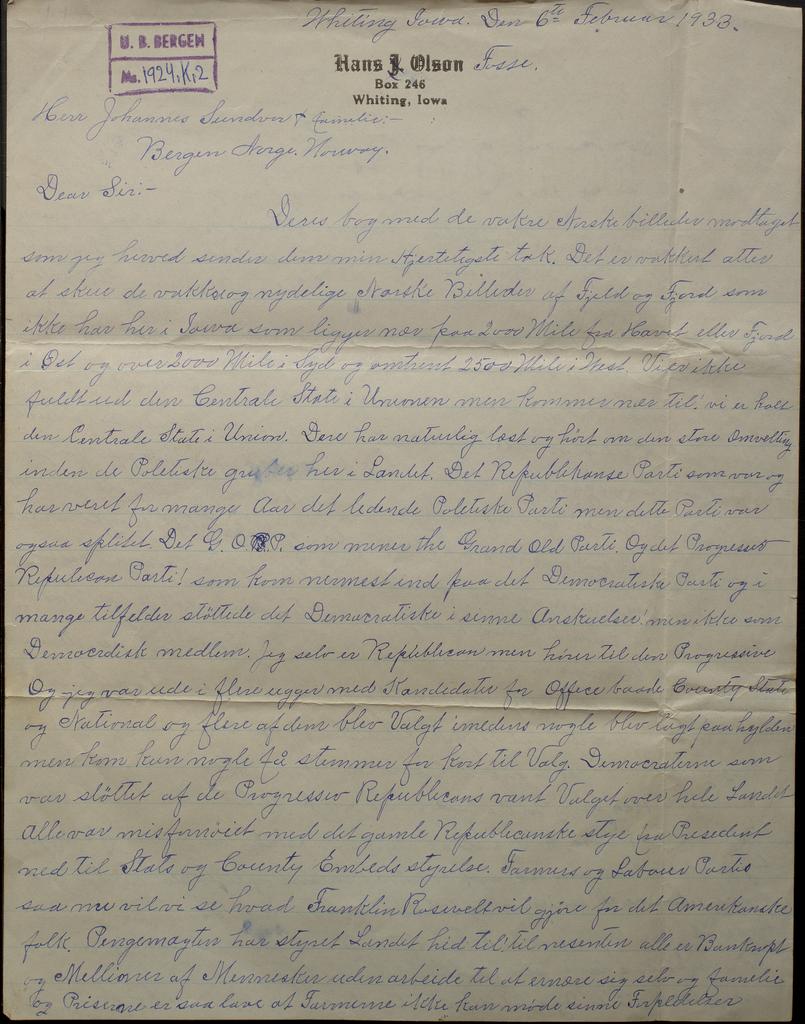 Whiting Iowa. Den 6te Februar 1933.
U. B. BERGEN
Ms. 1924, K, 2
Hans J. Olson Fosse.
Box 246
Whiting, Iowa
Herr Johannes Sundvor & familie:-
Bergen Norge. Norway.
Dear Sir:-
Deres bog med de vakre Norske billeder modtaget
som jeg herved sender dem min Hjerteligste tak. Det er vakkert atter
at skue de vakkre og nydelige Norske Billeder af Fjeld og Fjord som
ikke har her i Iowa som ligger nær paa 2000 Mile fra Havet eller Fjord
i Øst og over 2000 Mile i Syd og omtrent 2500 Mile i West. Vi er ikke
fuldt ud den Centrale State i Unionen men kommer nær til! vi er kalt
den Centrale State i Union. Dere har naturlig læst og hørt om den store Omvelting
inden de Poletiske grupper her i Landet. Det Republikanse Parti som var og
har veret for mange Aar det ledende Poletiske Parti men dette Parti var
ogsaa splitet. Det G. O. P. som mener the Grand Old Parti. Og det Progressiv
Republican Parti! som kom nermest ind paa det Democratiske Parti og i
mange tilfelder støttede det Democratiske i sinne Anskuelser! men ikke som
Democrdisk medlem. Jeg selv er Republican men hører til den Progressive
Og jeg var ude i flere ugger med Kandidater for Office baade County State
og National og flere af dem blev Valgt imedens nogle blev lagt paa hylden
men kom kun nogle få stemmer for kort til Valg. Democraterne som
var støttet af de Progressiv Republicans vant Valget over hele Landet
Alle var misfornøiet med det gamle Republicanske styre fra Presedent
ned til Stats og County Embeds styrelse. Farmers og Labour Partis
saa nu vil vi se hvad Franklin Rosevelt vil gjøre for det Amerikanske
folk. Pengemagten har styret Landet hid til! til nesenten alle er Bankrupt
og Mellioner af Mennesker uden arbeide til at ernære sig selv og familie
og Priserne er saa lave at Farmerne ikke kan møde sinne Forpleitser